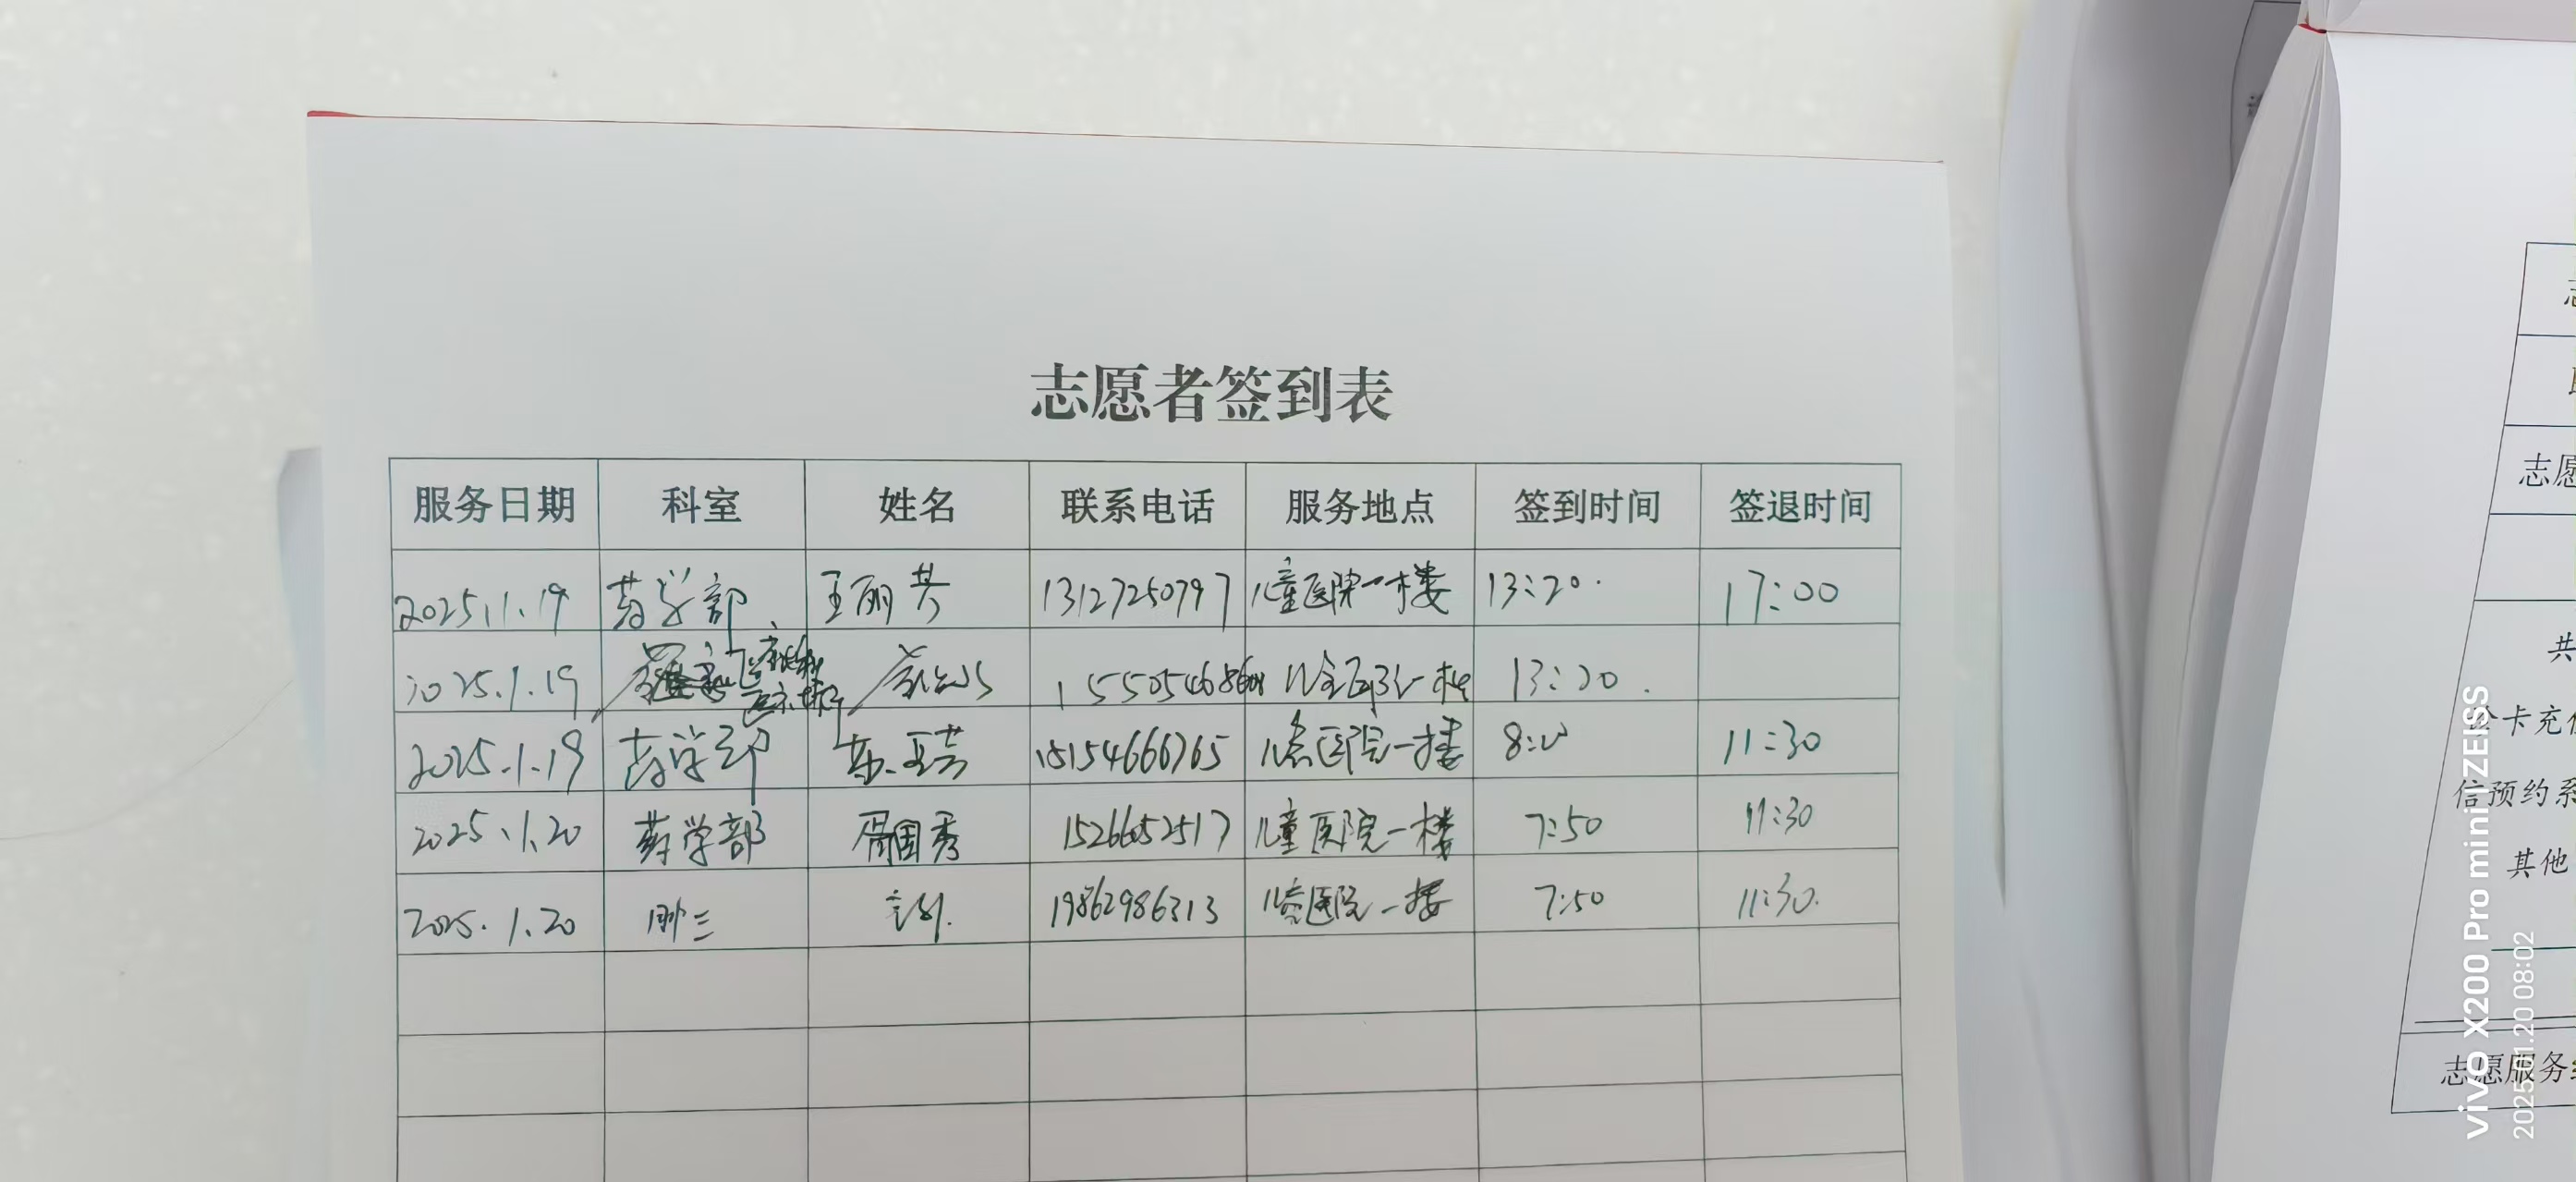 志愿者签到表
服务日期 科室 姓名 联系电话 服务地点 签到时间 签退时间
2025.1.19 药学部 王丽芳 13127250797 儿童医院一楼 13:20 17:00
2025.1.19 13:20
2025.1.19 药学部 15154666765 儿童医院一楼 11:30
2025.1.20 药学部 胥国秀 15266052517 儿童医院一楼 7:50 11:30
2025.1.20 肿三 19862986313 儿童医院一楼 7:50 11:30
志愿
共
卡充
信预约系
其他
志愿服务
vivo X200 Pro mini | ZEISS
2025.01.20 08:02